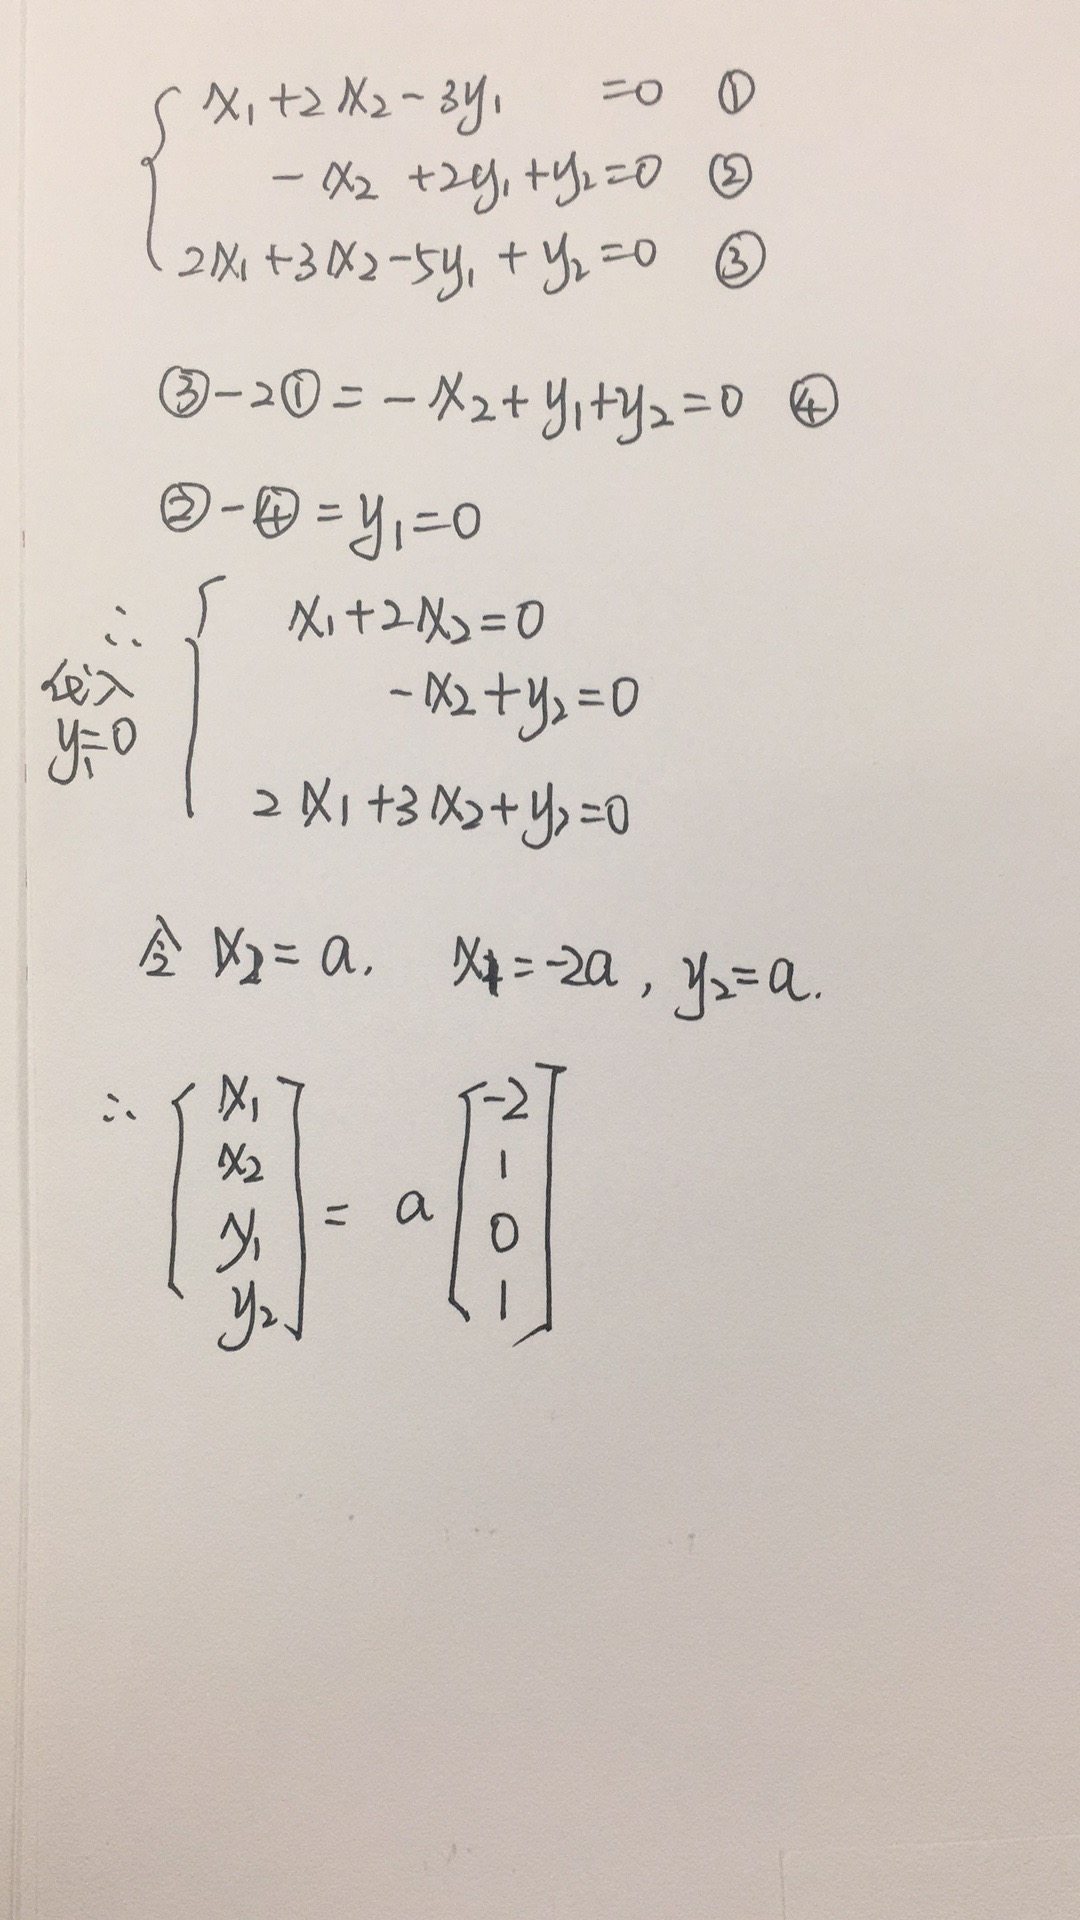 x₁+2x₂-3y₁ =0 ①
-x₂ +2y₁+y₂=0 ②
2x₁+3x₂-5y₁+y₂=0 ③
③-2①=-x₂+y₁+y₂=0 ④
②-④=y₁=0
∴ x₁+2x₂=0
代入 -x₂+y₂=0
y₁=0
2x₁+3x₂+y₂=0
令 x₂=a. x₁=-2a, y₂=a.
∴ [x₁ x₂ y₁ y₂] = a [-2 1 0 1]